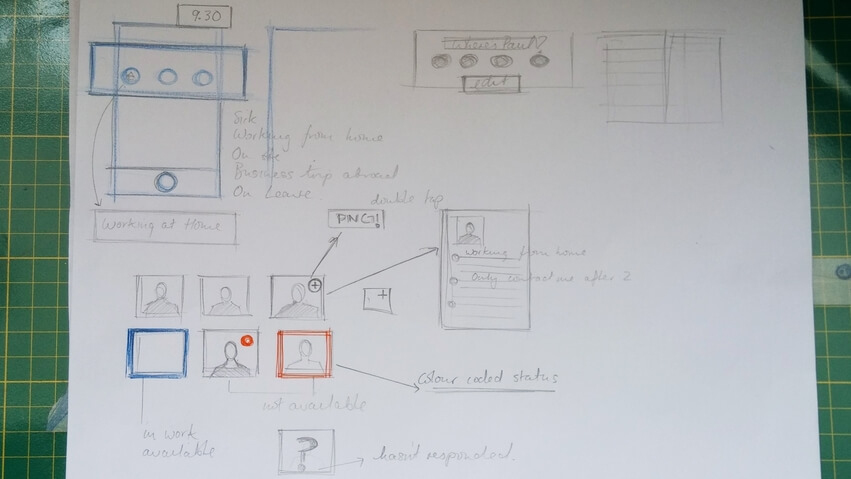 9.30
Where's Paul?
edit
Sick
Working from home
On the
Business trip abroad
On Leave.
Working at Home
double tap
PING!
working from home
Only contact me after 2
Colour coded status
not available
in work
available
?
hasn't responded.